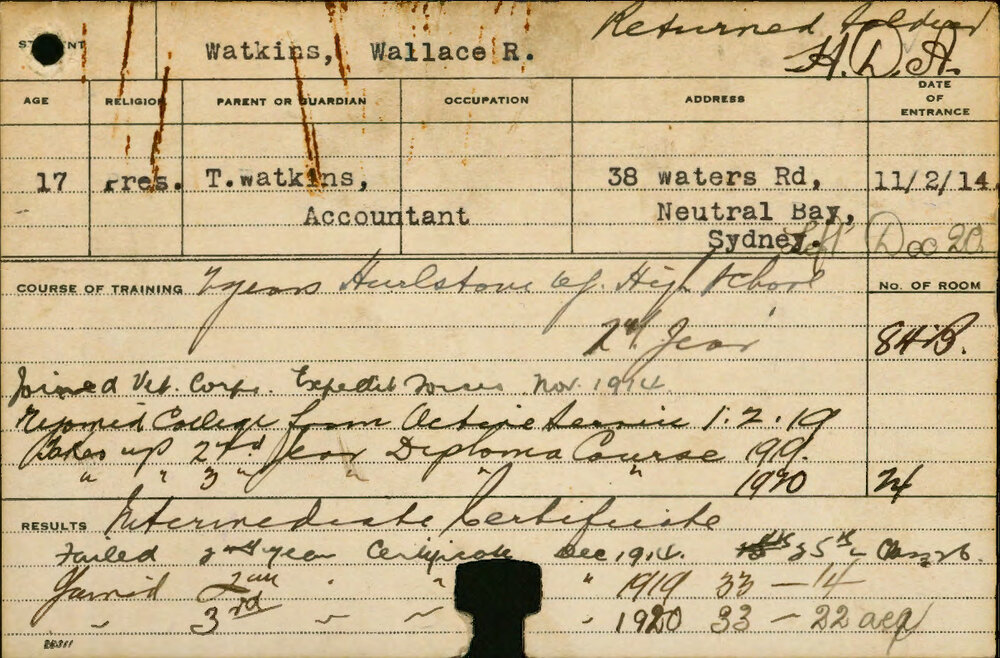 Returned Soldier
STUDENT Watkins, Wallace R. H.D.A.
AGE RELIGION PARENT OR GUARDIAN OCCUPATION ADDRESS DATE OF ENTRANCE
17 Pres. T.Watkins, 38 Waters Rd, 11/2/14
Accountant Neutral Bay,
Sydney. Left Dec 20
COURSE OF TRAINING 2 years Hurlstone Ag. High School No. OF ROOM
2nd Year 84B.
Joined Vet. Corps. Expedit Forces Nov. 1914
Rejoined College from Active Service 1.2.19
Takes up 2nd Year Diploma Course 1919.
" " 3 " " " " " 1920 24
RESULTS Intermediate Certificate
Failed 2nd Year Certificate Dec 1914. 25th in Class
2nd " " 1919 33 — 14
" 3rd " " " 1920 33 — 22 aeq